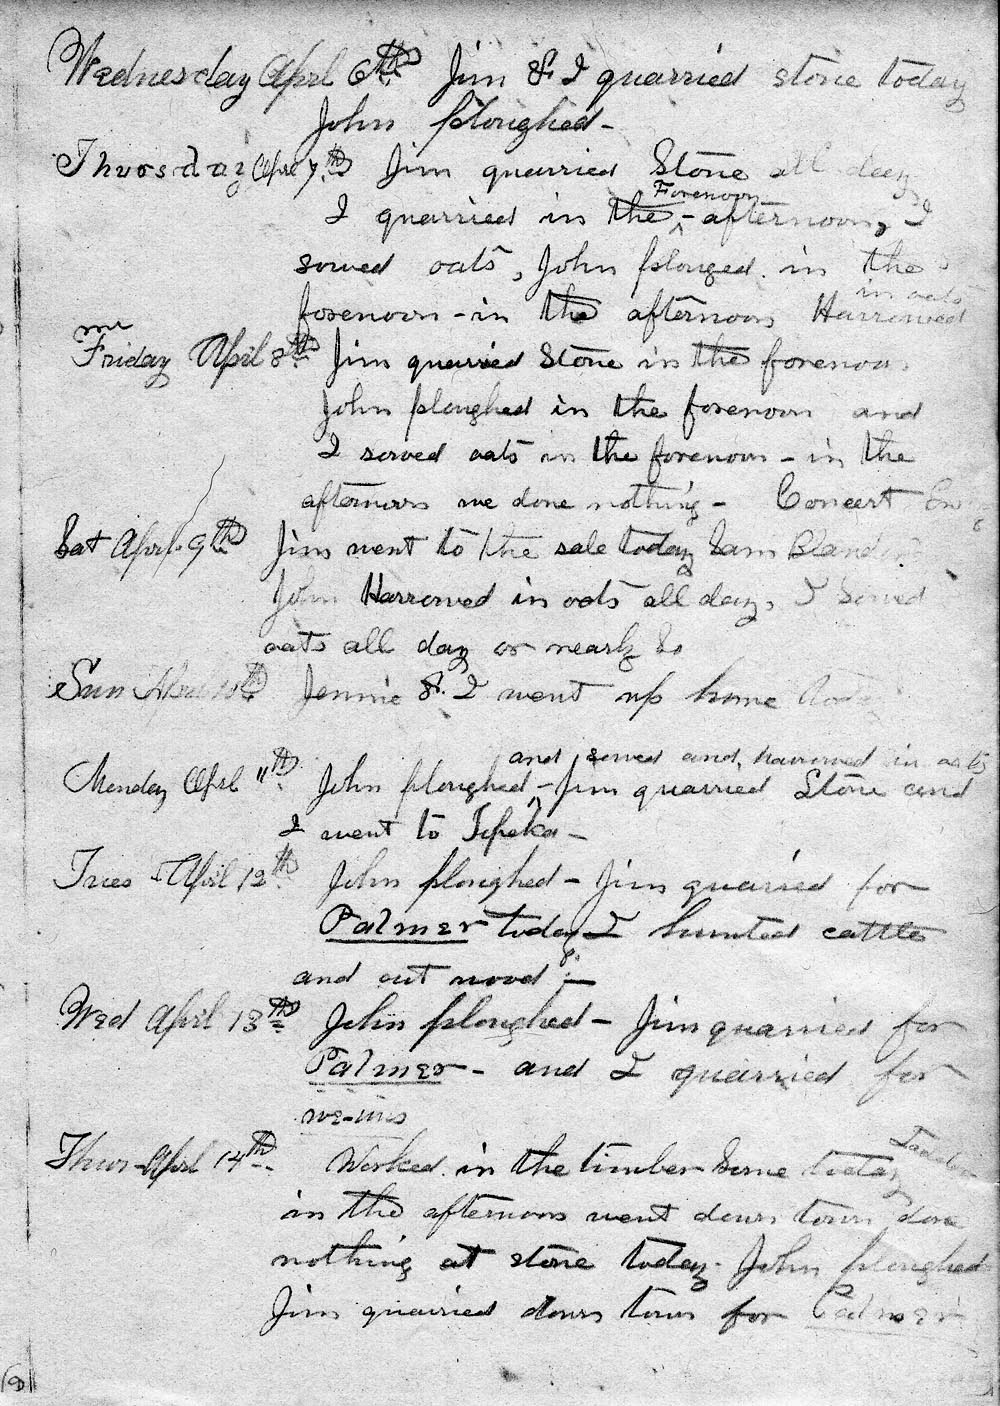 Wednesday Aprl 6th Jim & I quarried stone today
John ploughed -
Thursday Aprl 7th Jim quarried Stone all day
Forenoon
I quarried in the - afternoon, I
sowed oats, John plouged in the
in oats
forenoon - in the afternoon Harrowed
Friday April 8th Jim quarried Stone in the forenoon
John ploughed in the forenoon and
I sowed oats in the forenoon - in the
afternoon we done nothing - Concert
Sat Aprl 9th Jim went to the sale today Sam
John Harrowed in oats all day, I Sowed
oats all day or nearly so
Sun Aprl 10th Jennie & I went up home
and sowed and harrowed in oats
Monday Aprl 11th John ploughed - Jim quarried Stone and
I went to Topeka -
Tues - April 12th John ploughed - Jim quarried for
Palmer today I hunted cattle
and cut wood -
Wed April 13th John ploughed - Jim quarried for
Palmer - and I quarried for
Thur - Aprl 14th Worked in the timber Some today
in the afternoon went down town done
nothing at stone today. John ploughed
Jim quarried down town for Palmer